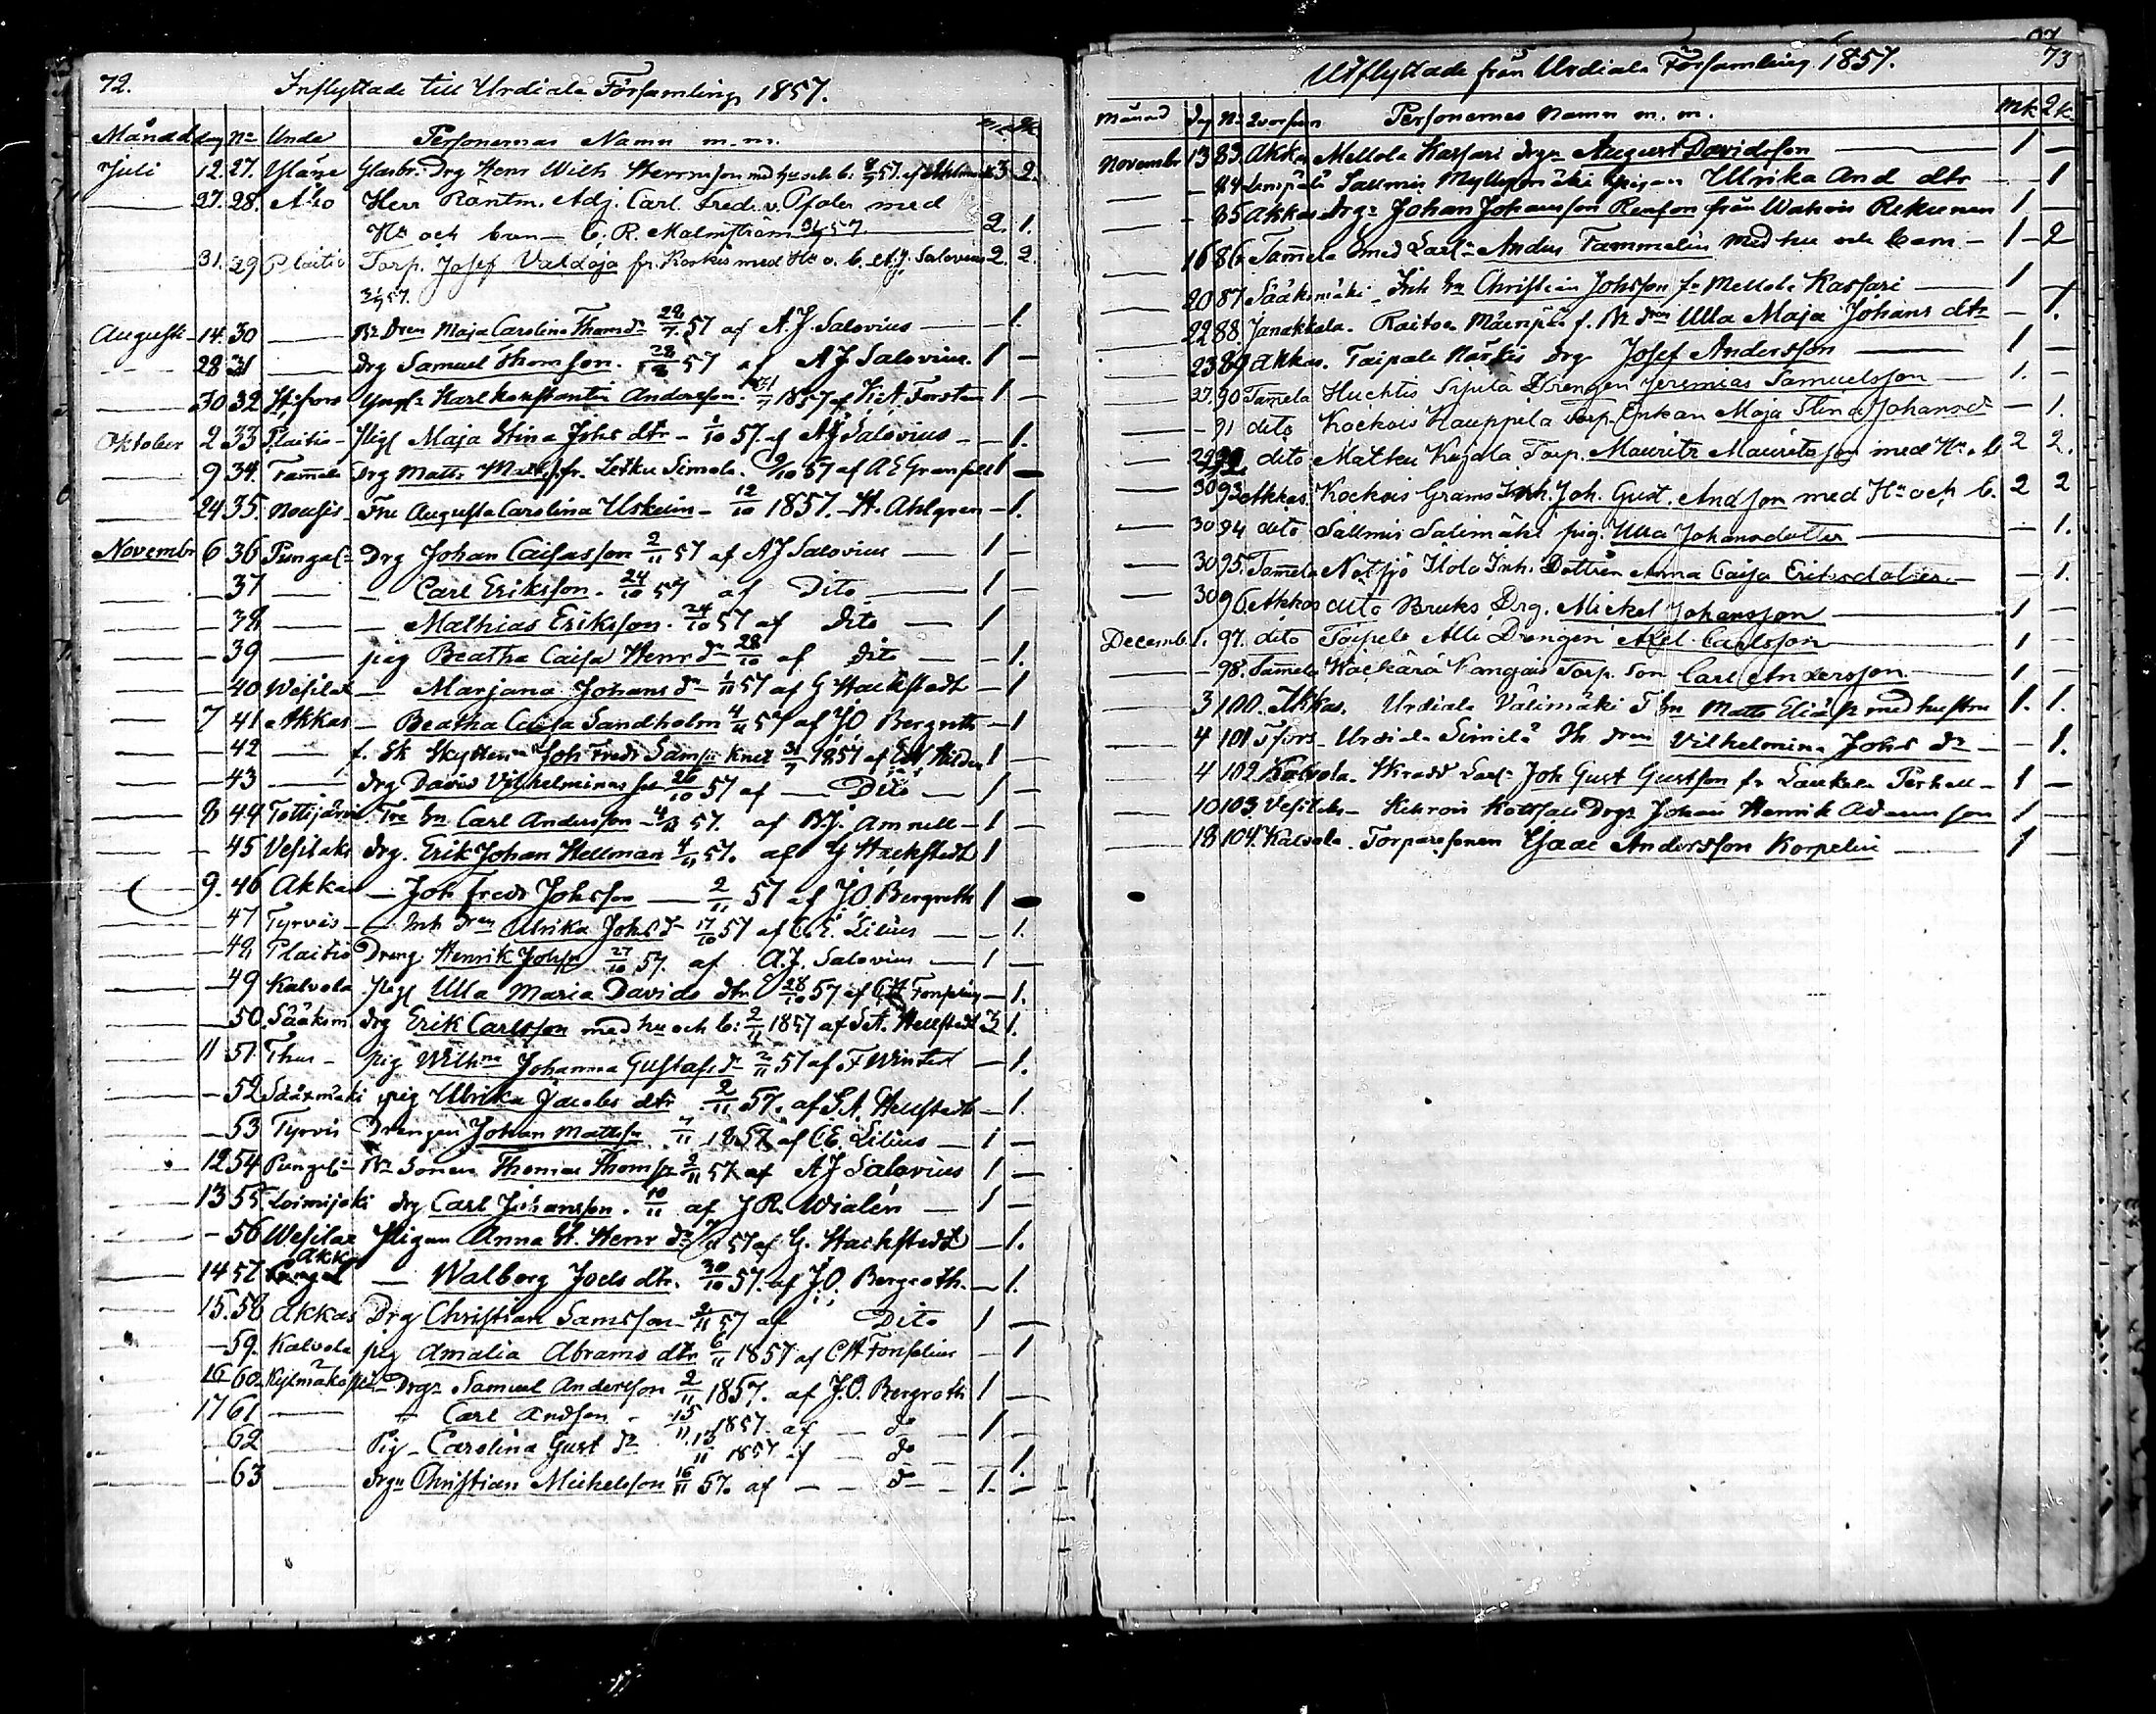 72.
Inflyttade till Urdiala Församling 1857.
Månad dag No Unde Personernas Namn m.m.
Juli 12. 27. Yläne Glasbr. Drg Henr Wilh Hermnson med hu och b. 57. af 3 2.
27. 28. Åbo Herr Räntm. Adj. Carl Fred. v. Pfaler med
Hu och barn — C. R. Malmström 57 2. 1.
31. 29 Plaitis Torp. Josef Valdoja fr. Koskis med Hu o. b. A.J. Salovius 2. 2.
57.
Augusti 14. 30 — Bn Dren Maja Carolina Thoms dr 28/7 57 af A. J. Salovius — — 1.
28 31 — Drg Samuel Thomson. 57 af A J Salovius. 1 —
— 30 32 H:fors Yngl: Karl Konstantin Andersson. 1857 af K. A. Forsten 1 —
Oktober 2 33 Plaitis — Pig Maja Stina Johs dtr — 1/10 57. af A J Salovius — — 1.
— 9 34. Tam̄ela Drg Matts fr. Letku Simola. 9/10 57 af A E Granfelt 1 —
— 24 35. Nousis — Fru Augusta Carolina — 12/10 1857. — H. Ahlgren — 1.
Novembr 6 36 Pungal: Drg Johan Caisasson 2/11 57 af A J Salovius — 1 —
— — 37 — — Carl Eriksson. 24/10 57 af Dito — 1 —
— — 38 — — Mathias Eriksson. 24/10 57 af Dito — 1
— — 39 — pig Beatha Caisa Henr dr 28/10 af Dito — — 1.
— — 40 Wesilax — Marjana Johans dr 1/11 57 af G Hackstedt — 1
— 7 41 Akkas — Beatha Caisa Sandholm 4/11 57 af J.O. Bergroth — 1
— — 42 — f. Sk Skytten Joh Fredr 1857 af 1 —
— — 43 — drg David Vilhelminas son 26/10 57 af — Dito — 1 —
— 8 44 Tottijärvi. Trp Sn Carl Andersson — 57. af B. J. Amnell — 1 —
— — 45 Vesilaks drg. Erik Johan Hellman 4/11 57. af G Hackstedt 1
9. 46 Akkas — Joh Fredr Johsson — 2/11 57 af J.O. Bergroth 1 —
— 47 Tyrvis — Inh dren Ulrika Johs dr 17/10 57 af C. E. Lilius — — 1.
— 48 Plaitis Dreng Henrik Johsn 27/10 57. af A. J. Salovius — 1 —
— 49 Kalvola pig Ulla Maria Davids dtr 28/10 57 af — 1.
— 50. Sääksm. drg Erik Carlsson med hu och b: 2/11 1857 af S.A. Hellstedt 3 1.
— 11 51 — pig Wilhna Johanna Gustafs dr 2/11 57 af F Winter — 1.
— — 52 Sääxmäki pig Ulrika Jacobs dtr 2/11 57. af S.A. Hellstedt — 1.
— — 53 Tyrvis Drengen Johan Mattsn 7/11 1857 af C E. Lilius — 1 —
12 54 Pungal: Bn Sonen Thomas Thomsn 2/11 57 af A J Salovius 1 —
— 13 55 Loimijoki drg Carl Johansson. 10/11 af J R. Wialén — 1 —
— — 56 Wesilax Pigan Anna St. Henr dr 57 af G. Hackstedt — 1.
— 14 57 Akk — Walborg Joels dtr. 30/10 57. af J.O. Bergroth. — 1.
— 15. 58 Akkas Drg Christian Samsson 2/11 57 af Dito 1 —
— — 59. Kalvola pig Amalia Abrams dtr 6/11 1857 af — 1
16 60. Kylmäkoski — Drgn Samuel Andersson 2/11 1857. af J.O. Bergroth 1 —
17 61 — — Carl Andson — 15/11 1857. af — do — 1 —
— 62 — Pig — Carolina Gust dr 15/11 1857 af — do — 1.
— 63 — drgn Christian Michelsson 16/11 57. af — — do — 1. —
73
Utflyttade från Urdiala Församling 1857.
Månad Dag No Qvarfrån Personernes Namn m. m. Mk Qk.
Novembr 13 83. Akkas Mellola Kassari drgn August Davidsson — 1 —
— — 84 Lempälä Salmis Myllymäki pigan Ulrika And dtr — 1
— — 85 Akkas Drgn Johan Johansson Renfors från Watois Rekunen 1 —
— 16 86. Tam̄ela Smed Lärl: Anders Tammelin med hu och barn — 1 — 2
— 20 87 Sääksmäki — Inh Sn Christian Johsson fr Mellola Kassari — 1
— 22 88. Janakkala. Raitoo Mäenpää f. Bn dren Ulla Maja Johans dtr — 1.
— 23 89 Akkas. Taipale Närkis drg Josef Andersson — 1 —
— 27. 90 Tam̄ela Huchtis Sipilä Drengen Jeremias Samuelsson — 1. —
— — 91 dito Kockois Kauppela Torp. Enkan Maja Stina Johansdr — 1.
— 29 92. dito Matku Kujala Torp. Mauritz Mauritzson med Hu o. b 2 2.
— 30 93 Akkas Kockois Grams Inh. Joh. Gust. Andson med Hu och b. 2 2
— 30 94 dito Salmis Salimäki pig. Ulla Johansdotter — — 1.
— 30 95. Tam̄ela Notsjö Ilola Inh. Dottren Anna Caisa Eriksdotter — — 1.
— 30 96 Akkas dito Bruks Drg. Mickel Johansson — 1 —
Decemb. 1. 97. dito Taipale Alli Drengen Axel Carlsson — 1 —
— — 98. Tam̄ela Kangais Torp. Son Carl Andersson — 1 —
— 3 100. Akkas. Urdiala Välimäki T Sn Matts Eliæ med hustru 1. 1.
— 4 101 T:fors — Urdiala Similä Th dren Vilhelmina Johs dr — — 1.
— 4 102 Kalvola. Skradd Lärl: Joh Gust Gustson fr Laukela Perhell — 1 —
— 10 103. Vesilaks — Drgn Johan Henrik Adamsson 1 —
— 18 104. Kalvola. Torparesonen Isaac Andersson Korpelin — 1 —